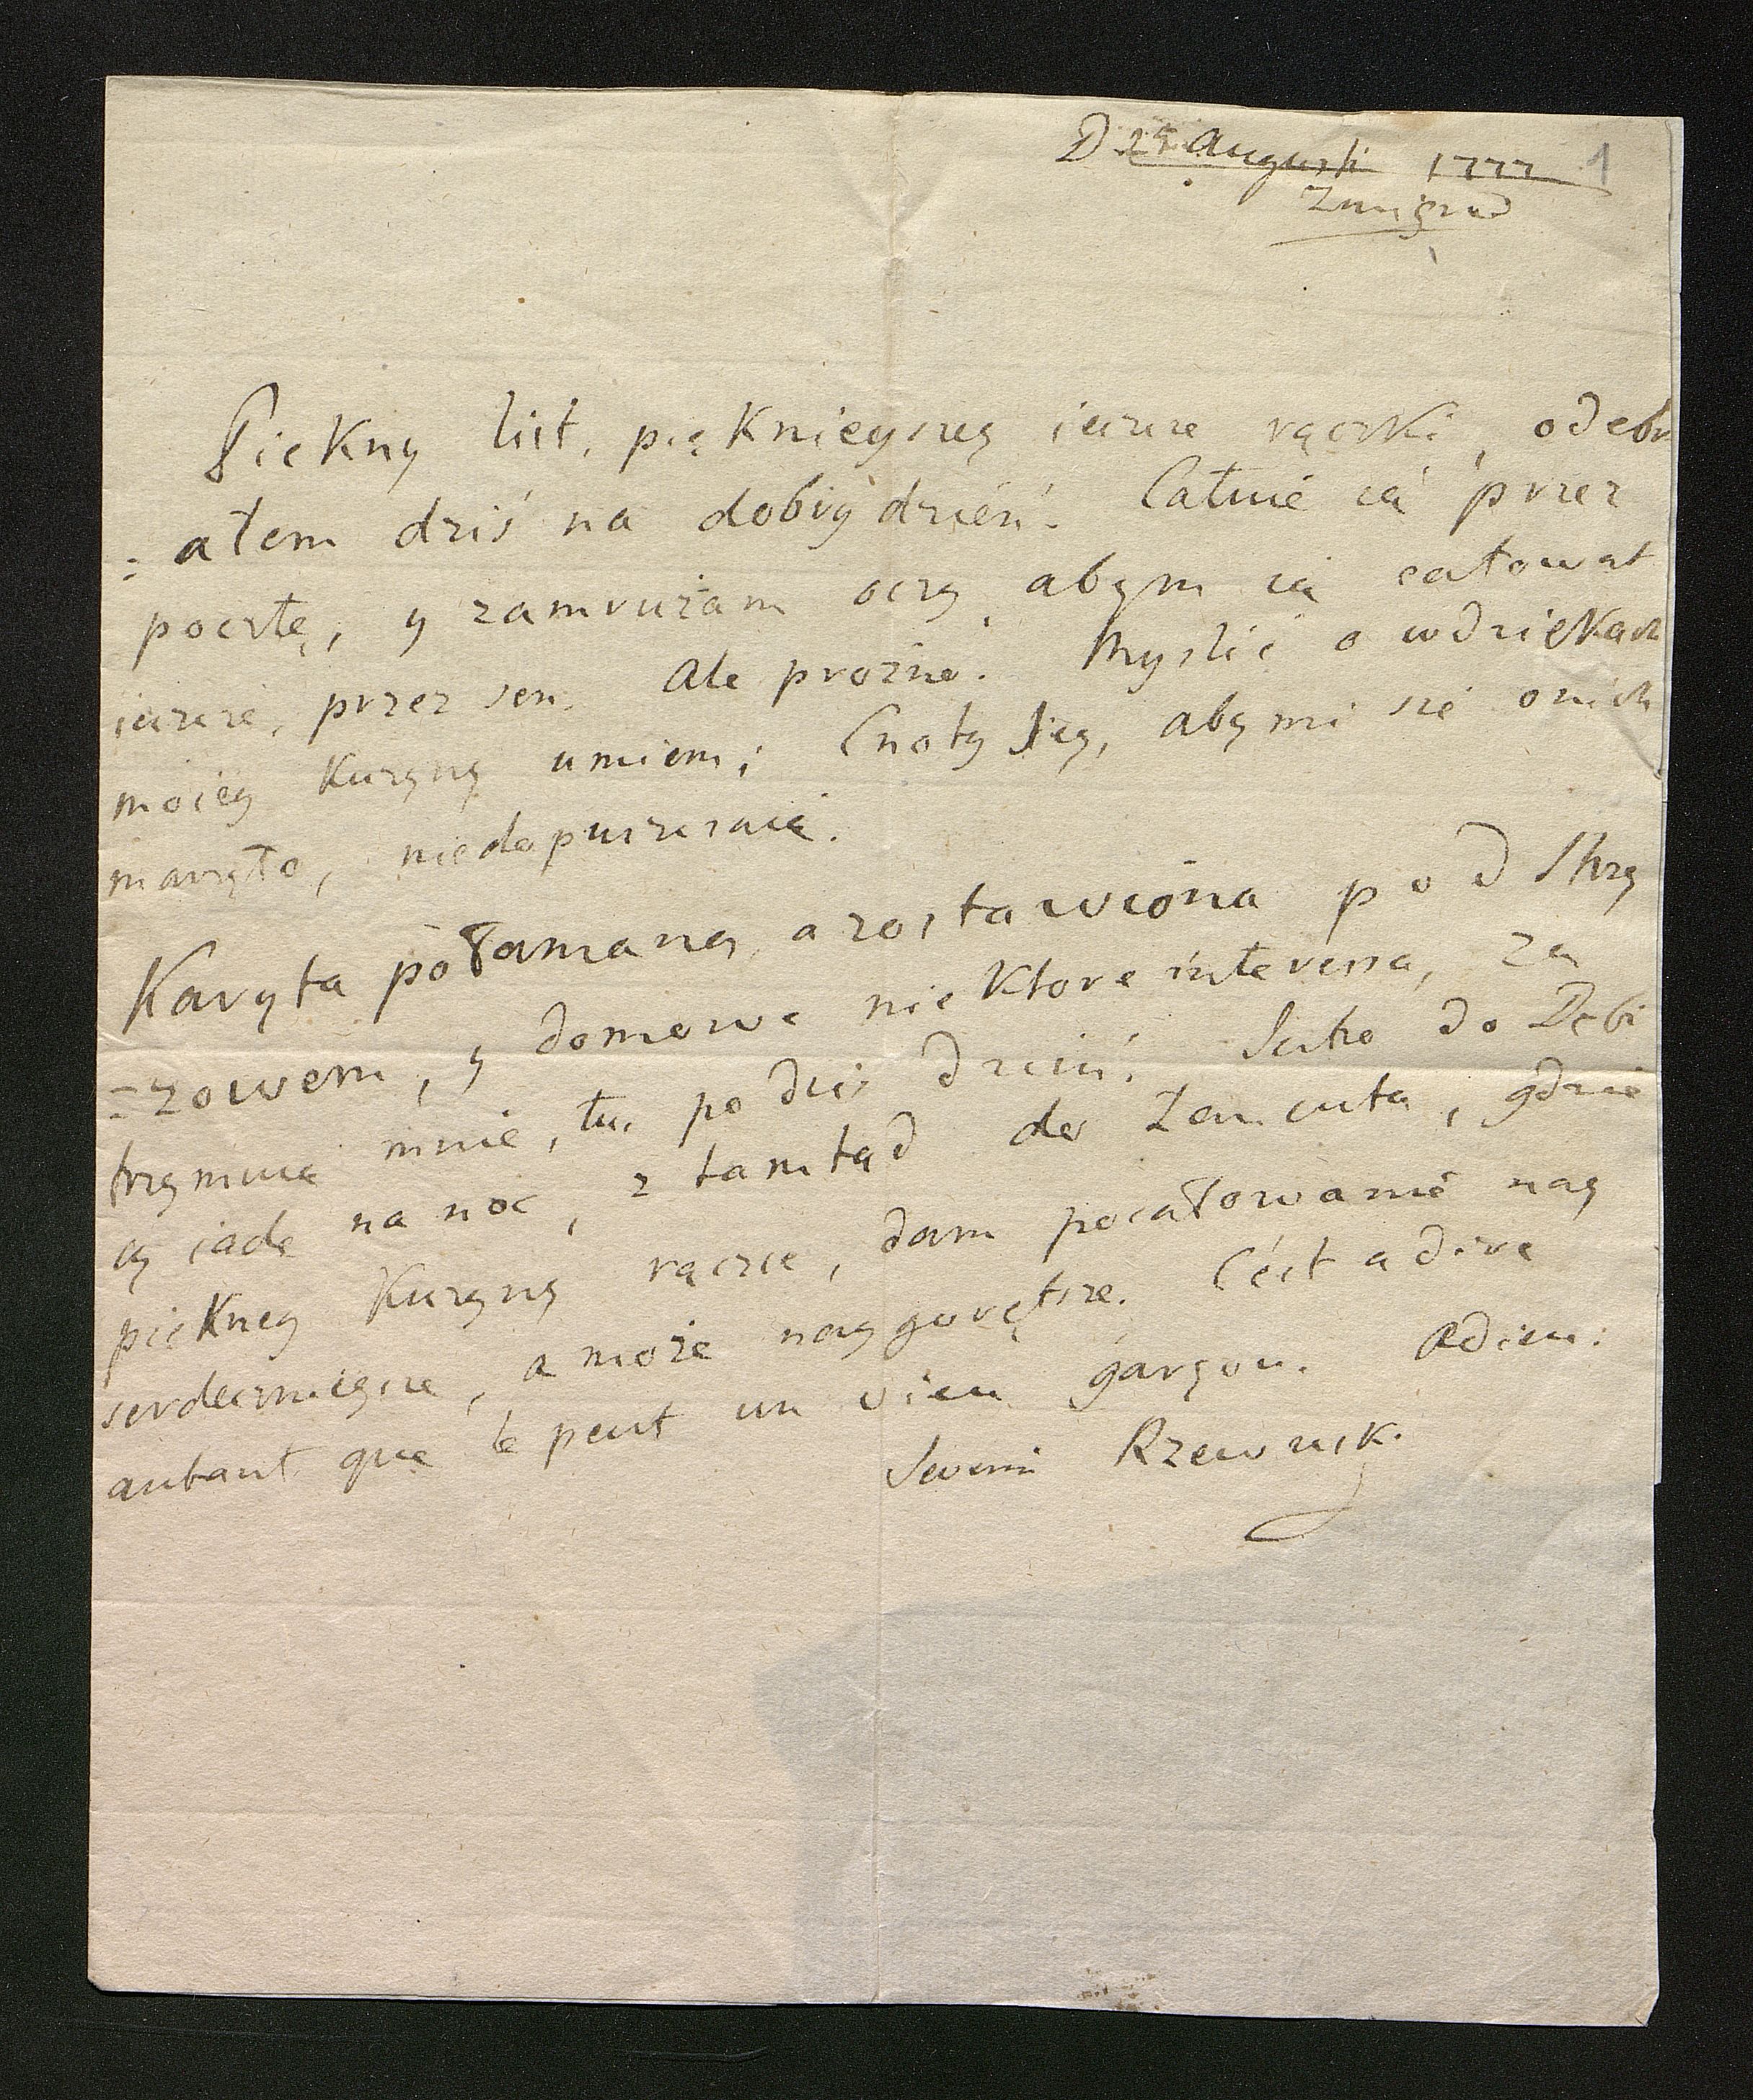 D 24 Augusti 1777 1
Zmigrod
Piękny list, pięknieyszey ieszcze rączki, odebr
=ałem dziś na dobry dzień. Całuię ią przez
pocztę, y zamrużam oczy, abym ią całował
ieszcze, przez sen. Ale prożno. Myslić o wdziękach
moiey Kuzyny umiem; Cnoty Iey, aby mi się o nich
marzyło, niedopuszczaią.
Karyta połamana, a zostawiona pod Strzy
=zowem, y domowe nie ktore interessa, za
trzymuią mnie, tu, po dziś dzień. Jutro do Dębi
cy iadę na noc, z tamtąd do Łancuta, gdzie
piękney Kuzyny rączce, dam pocałowanie nay
serdecznieysze, a może naygorętsze. C'est a dire
autant que le peut un vieu garçon. Adieu.
Severin Rzewuski